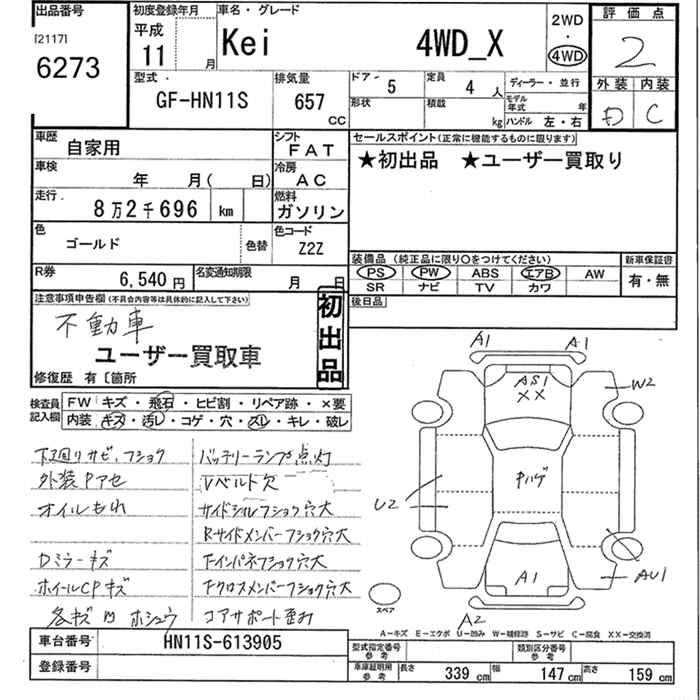 出品番号
[2117]
6273
初度登録年月
平成
11 月
車名・グレード
Kei 4WD_X
2WD
・
4WD
評価点
2
外装 内装
D C
型式
GF-HN11S
排気量
657
CC
ドア 5
定員 4 人
ディーラー・並行
形状
積載 kg
モデル年式 年
ハンドル 左・右
車歴
自家用
シフト
FAT
車検
年 月( 日)
冷房
AC
走行
8万2千696 km
燃料
ガソリン
色
ゴールド
色替
色コード
Z2Z
R券
6,540 円
名変通知期限
月 日
セールスポイント(正常に機能するものに限ります)
★初出品 ★ユーザー買取り
装備品(純正品に限り○をつけてください)
PS PW ABS エアB AW
SR ナビ TV カワ
新車保証書
有・無
後日品
注意事項申告欄(不具合内容等は具体的に記入して下さい)
不動車
ユーザー買取車
初出品
修復歴 有〔箇所
検査員記入欄
FW キズ・飛石・ヒビ割・リペア跡・×要
内装 キズ・汚レ・コゲ・穴・スレ・キレ・破レ
下廻りサビ、フショク
外装Pアセ
オイルもれ
Dミラーキズ
ホイールCPキズ
各キズ凹ホシュウ
バッテリーランプ点灯
Vベルト欠
サイドシルフショク穴大
Rサイドメンバーフショク穴大
Fインパネフショク穴大
Fクロスメンバーフショク穴大
コアサポート歪み
A1 A1
AS1
XX
W2
U2
Pハゲ
A1
AU1
A2
スペア
A-キズ E-エクボ U-凹み W-補修跡 S-サビ C-腐食 XX-交換済
車台番号
HN11S-613905
登録番号
型式指定番号
参考
類別区分番号
参考
車庫証明用
参考
長さ 339 cm
幅 147 cm
高さ 159 cm